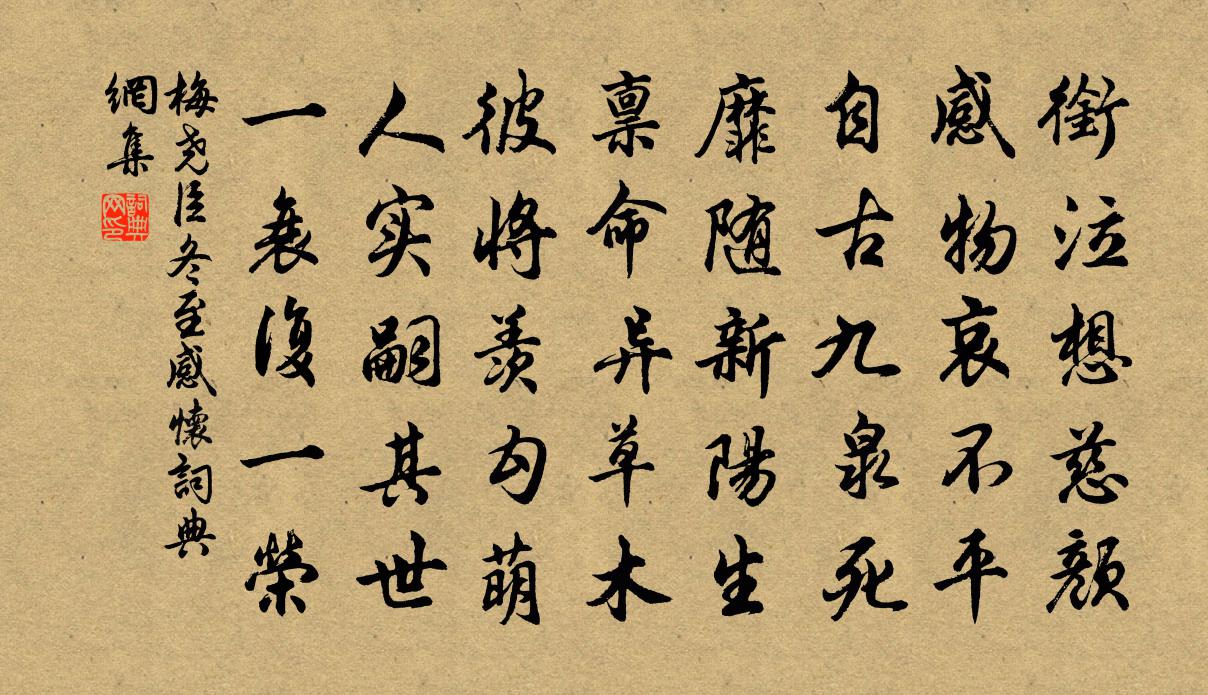 銜泣想慈顔
感物哀不平
自古九泉死
靡随新陽生
禀命异草木
彼將羨勾萌
人实嗣其世
一衰復一榮
梅尧臣冬至感懷詞典
網集
詞典
网印